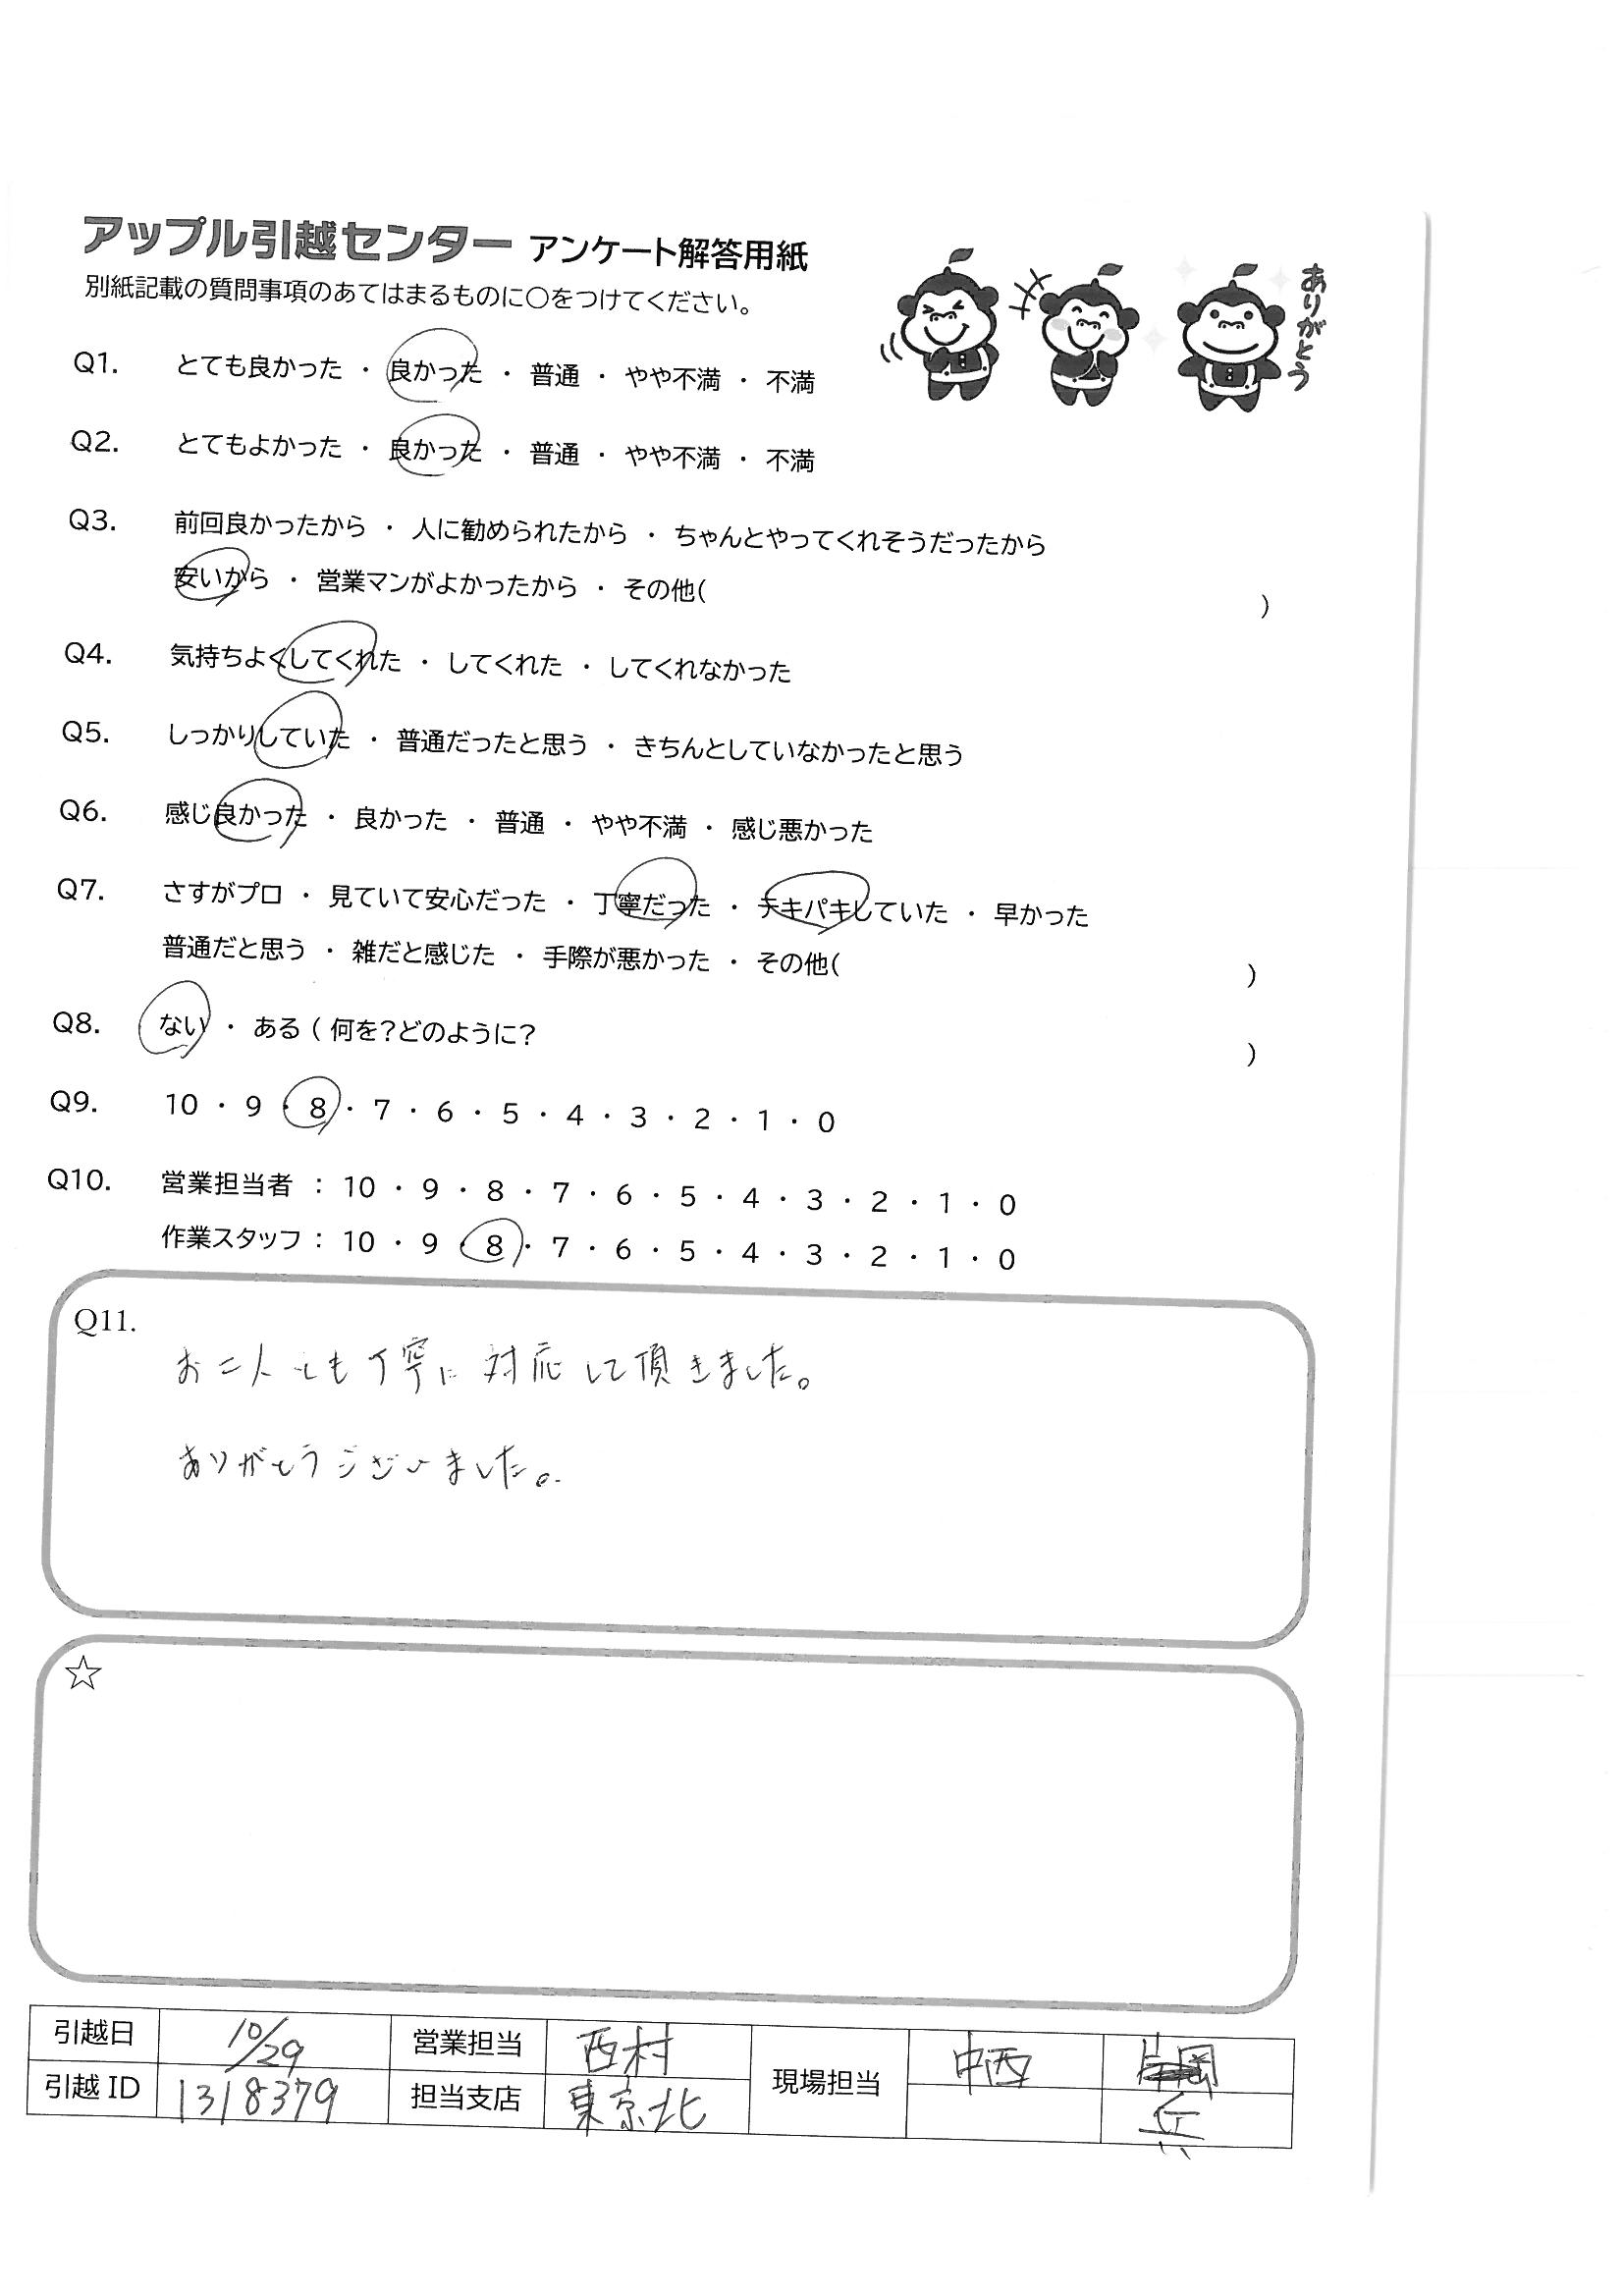 アップル引越センター アンケート解答用紙
別紙記載の質問事項のあてはまるものに○をつけてください。
ありがとう
Q1. とても良かった ・ 良かった ・ 普通 ・ やや不満 ・ 不満
Q2. とてもよかった ・ 良かった ・ 普通 ・ やや不満 ・ 不満
Q3. 前回良かったから ・ 人に勧められたから ・ ちゃんとやってくれそうだったから
安いから ・ 営業マンがよかったから ・ その他( )
Q4. 気持ちよくしてくれた ・ してくれた ・ してくれなかった
Q5. しっかりしていた ・ 普通だったと思う ・ きちんとしていなかったと思う
Q6. 感じ良かった ・ 良かった ・ 普通 ・ やや不満 ・ 感じ悪かった
Q7. さすがプロ ・ 見ていて安心だった ・ 丁寧だった ・ テキパキしていた ・ 早かった
普通だと思う ・ 雑だと感じた ・ 手際が悪かった ・ その他( )
Q8. ない ・ ある ( 何を?どのように? )
Q9. 10 ・ 9 ・ 8 ・ 7 ・ 6 ・ 5 ・ 4 ・ 3 ・ 2 ・ 1 ・ 0
Q10. 営業担当者 : 10 ・ 9 ・ 8 ・ 7 ・ 6 ・ 5 ・ 4 ・ 3 ・ 2 ・ 1 ・ 0
作業スタッフ : 10 ・ 9 ・ 8 ・ 7 ・ 6 ・ 5 ・ 4 ・ 3 ・ 2 ・ 1 ・ 0
Q11.
お二人とも丁寧に対応して頂きました。
ありがとうございました。
☆
引越日 10/29 営業担当 西村 現場担当 中西 片岡
引越 ID 1318379 担当支店 東京北 兵